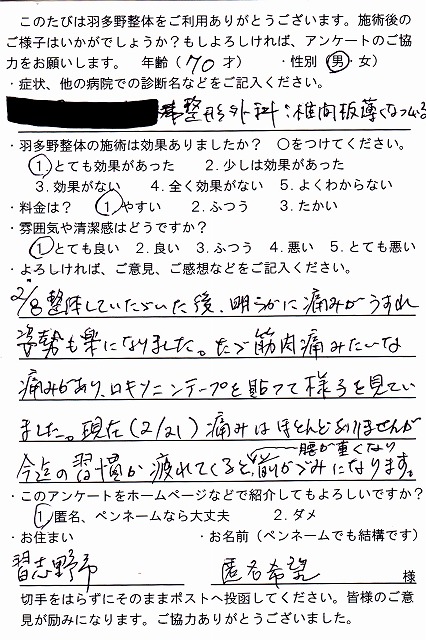 このたびは羽多野整体をご利用ありがとうございます。施術後の
ご様子はいかがでしょうか?もしよろしければ、アンケートのご協
力をお願いします。 年齢(70才) ・性別(男・女)
・症状、他の病院での診断名などをご記入ください。
整形外科:椎間板薄くなっている
・羽多野整体の施術は効果ありましたか? ○をつけてください。
1.とても効果があった 2.少しは効果があった
3.効果がない 4.全く効果がない 5.よくわからない
・料金は? 1.やすい 2.ふつう 3.たかい
・雰囲気や清潔感はどうですか?
1.とても良い 2.良い 3.ふつう 4.悪い 5.とても悪い
・よろしければ、ご意見、ご感想などをご記入ください。
2/8整体していただいた後、明らかに痛みがうすれ
姿勢も楽になりました。ただ筋肉痛みたいな
痛みがあり、ロキソニンテープを貼って様子を見てい
ました。現在(2/21)痛みはほとんどありませんが
今迄の習慣か疲れてくると腰が重くなり前かがみになります。
・このアンケートをホームページなどで紹介してもよろしいですか?
1.匿名、ペンネームなら大丈夫 2.ダメ
・お住まい ・お名前(ペンネームでも結構です)
習志野市 匿名希望 様
切手をはらずにそのままポストへ投函してください。皆様のご意
見が励みになります。ご協力ありがとうございました。